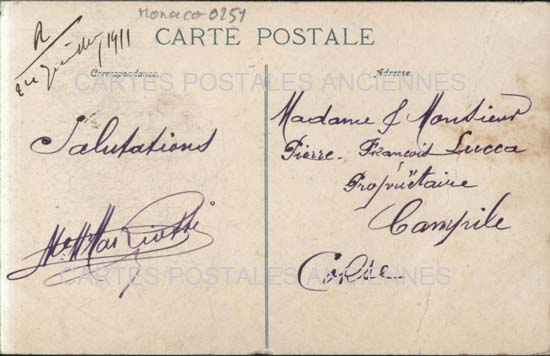 Monaco-0251
CARTE POSTALE
R
1911
Correspondance
Adresse
CARTES POSTALES ANCIENNES
Salutations
Madame & Monsieur
Pierre-François Lucca
Propriétaire
Campile
Corse
CARTES POSTALES ANCIENNES